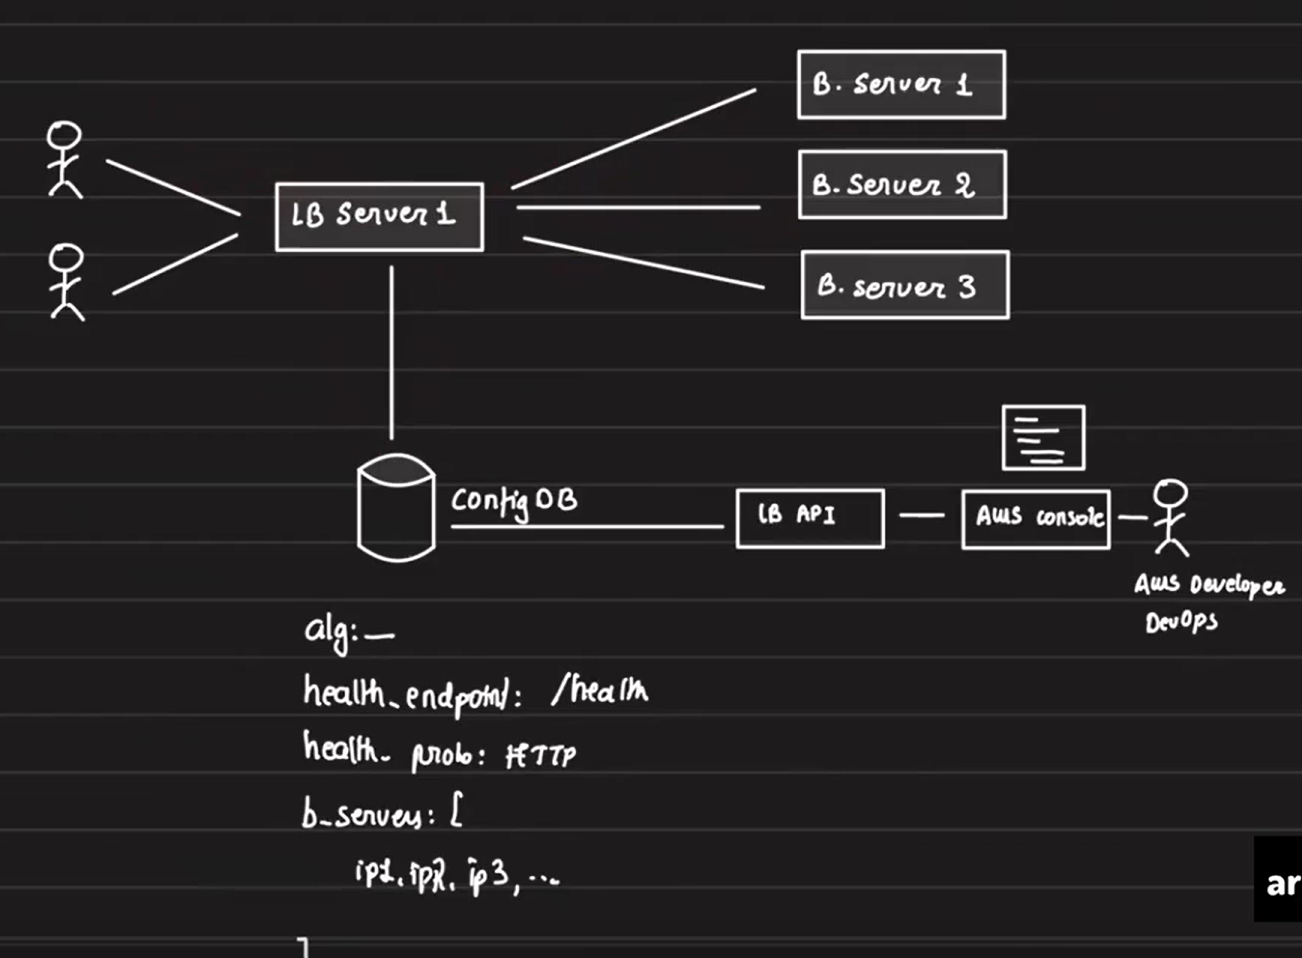 B. Server 1
B. Server 2
LB Server 1
B. server 3
Config DB
LB API
AWS console
AWS Developer
DevOps
alg: —
health_endpoint: /health
health_ proto: HTTP
b_servers: [
ip1, ip2, ip3, ...
]
ar